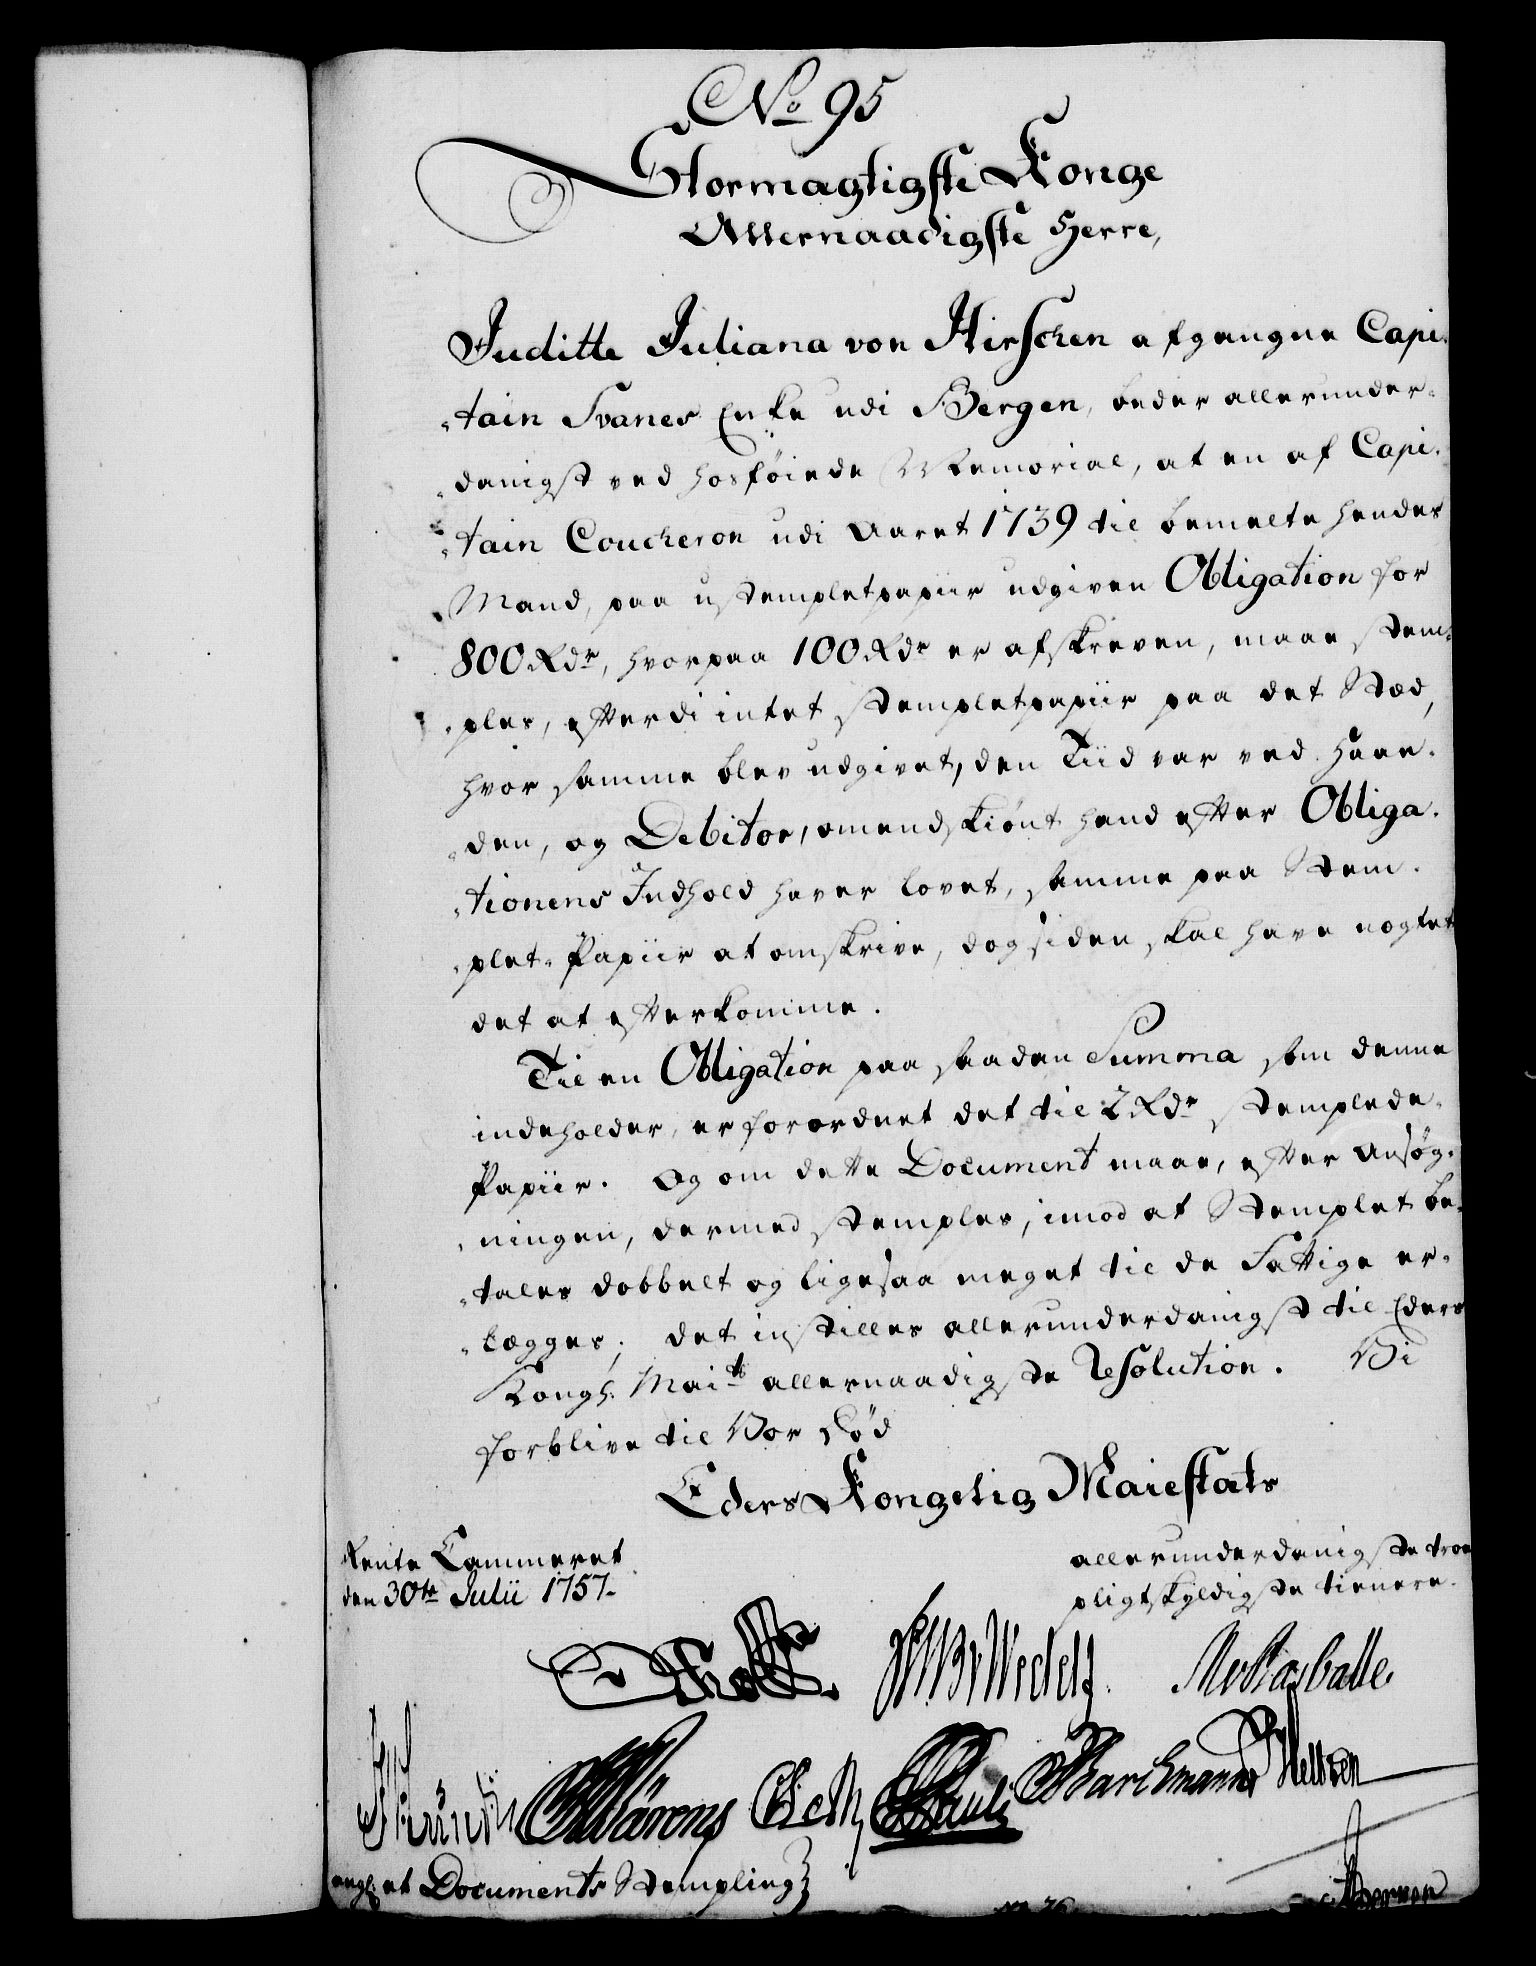 No 95
Stormagtigste Konge
Allernaadigste Herre,
Juditte Juliana von Hirschen afgangne Capi-
-tain Svanes Enke udi Bergen, beder allerunder-
-danigst ved hosföiede Memorial, at en af Capi-
-tain Coucheron udi Aaret 1739 til bemelte hendes
Mand, paa ustempletpapiir udgiven Obligation for
800 Rdr, hvorpaa 100 Rdr er afskreven, maae stem-
-ples, efterdi intet stempletpapiir paa det Stæd,
hvor samme blev udgivet, den Tiid var ved Haan-
-den, og Debitor, omendskiönt hand efter Obliga-
-tionens Indhold haver lovet, samme paa Stem-
-plet-Papiir at omskrive, dog siden skal have nægtet
det at efterkomme.
Til en Obligation paa saadan Summa som denne
indeholder, er forordnet det til 2 Rdr stemplede-
Papiir. Og om dette Document maae, efter Ansög-
-ningen, dermed stemples, imod at Stemplet be-
-tales dobbelt og ligesaa meget til de Fattige er-
-lægges; det instilles allerunderdanigst til Eders
Kongl. Maits allernaadigste Resolution. Vi
forblive til Vor Död
Eders Kongelig Maiestats
Rente Cammeret
den 30te Julii 1757.
allerunderdanigste troe
pligtskyldigste tienere.
Holst
Wedell
Pauli
Barchmann
ang: et Documents Stempling